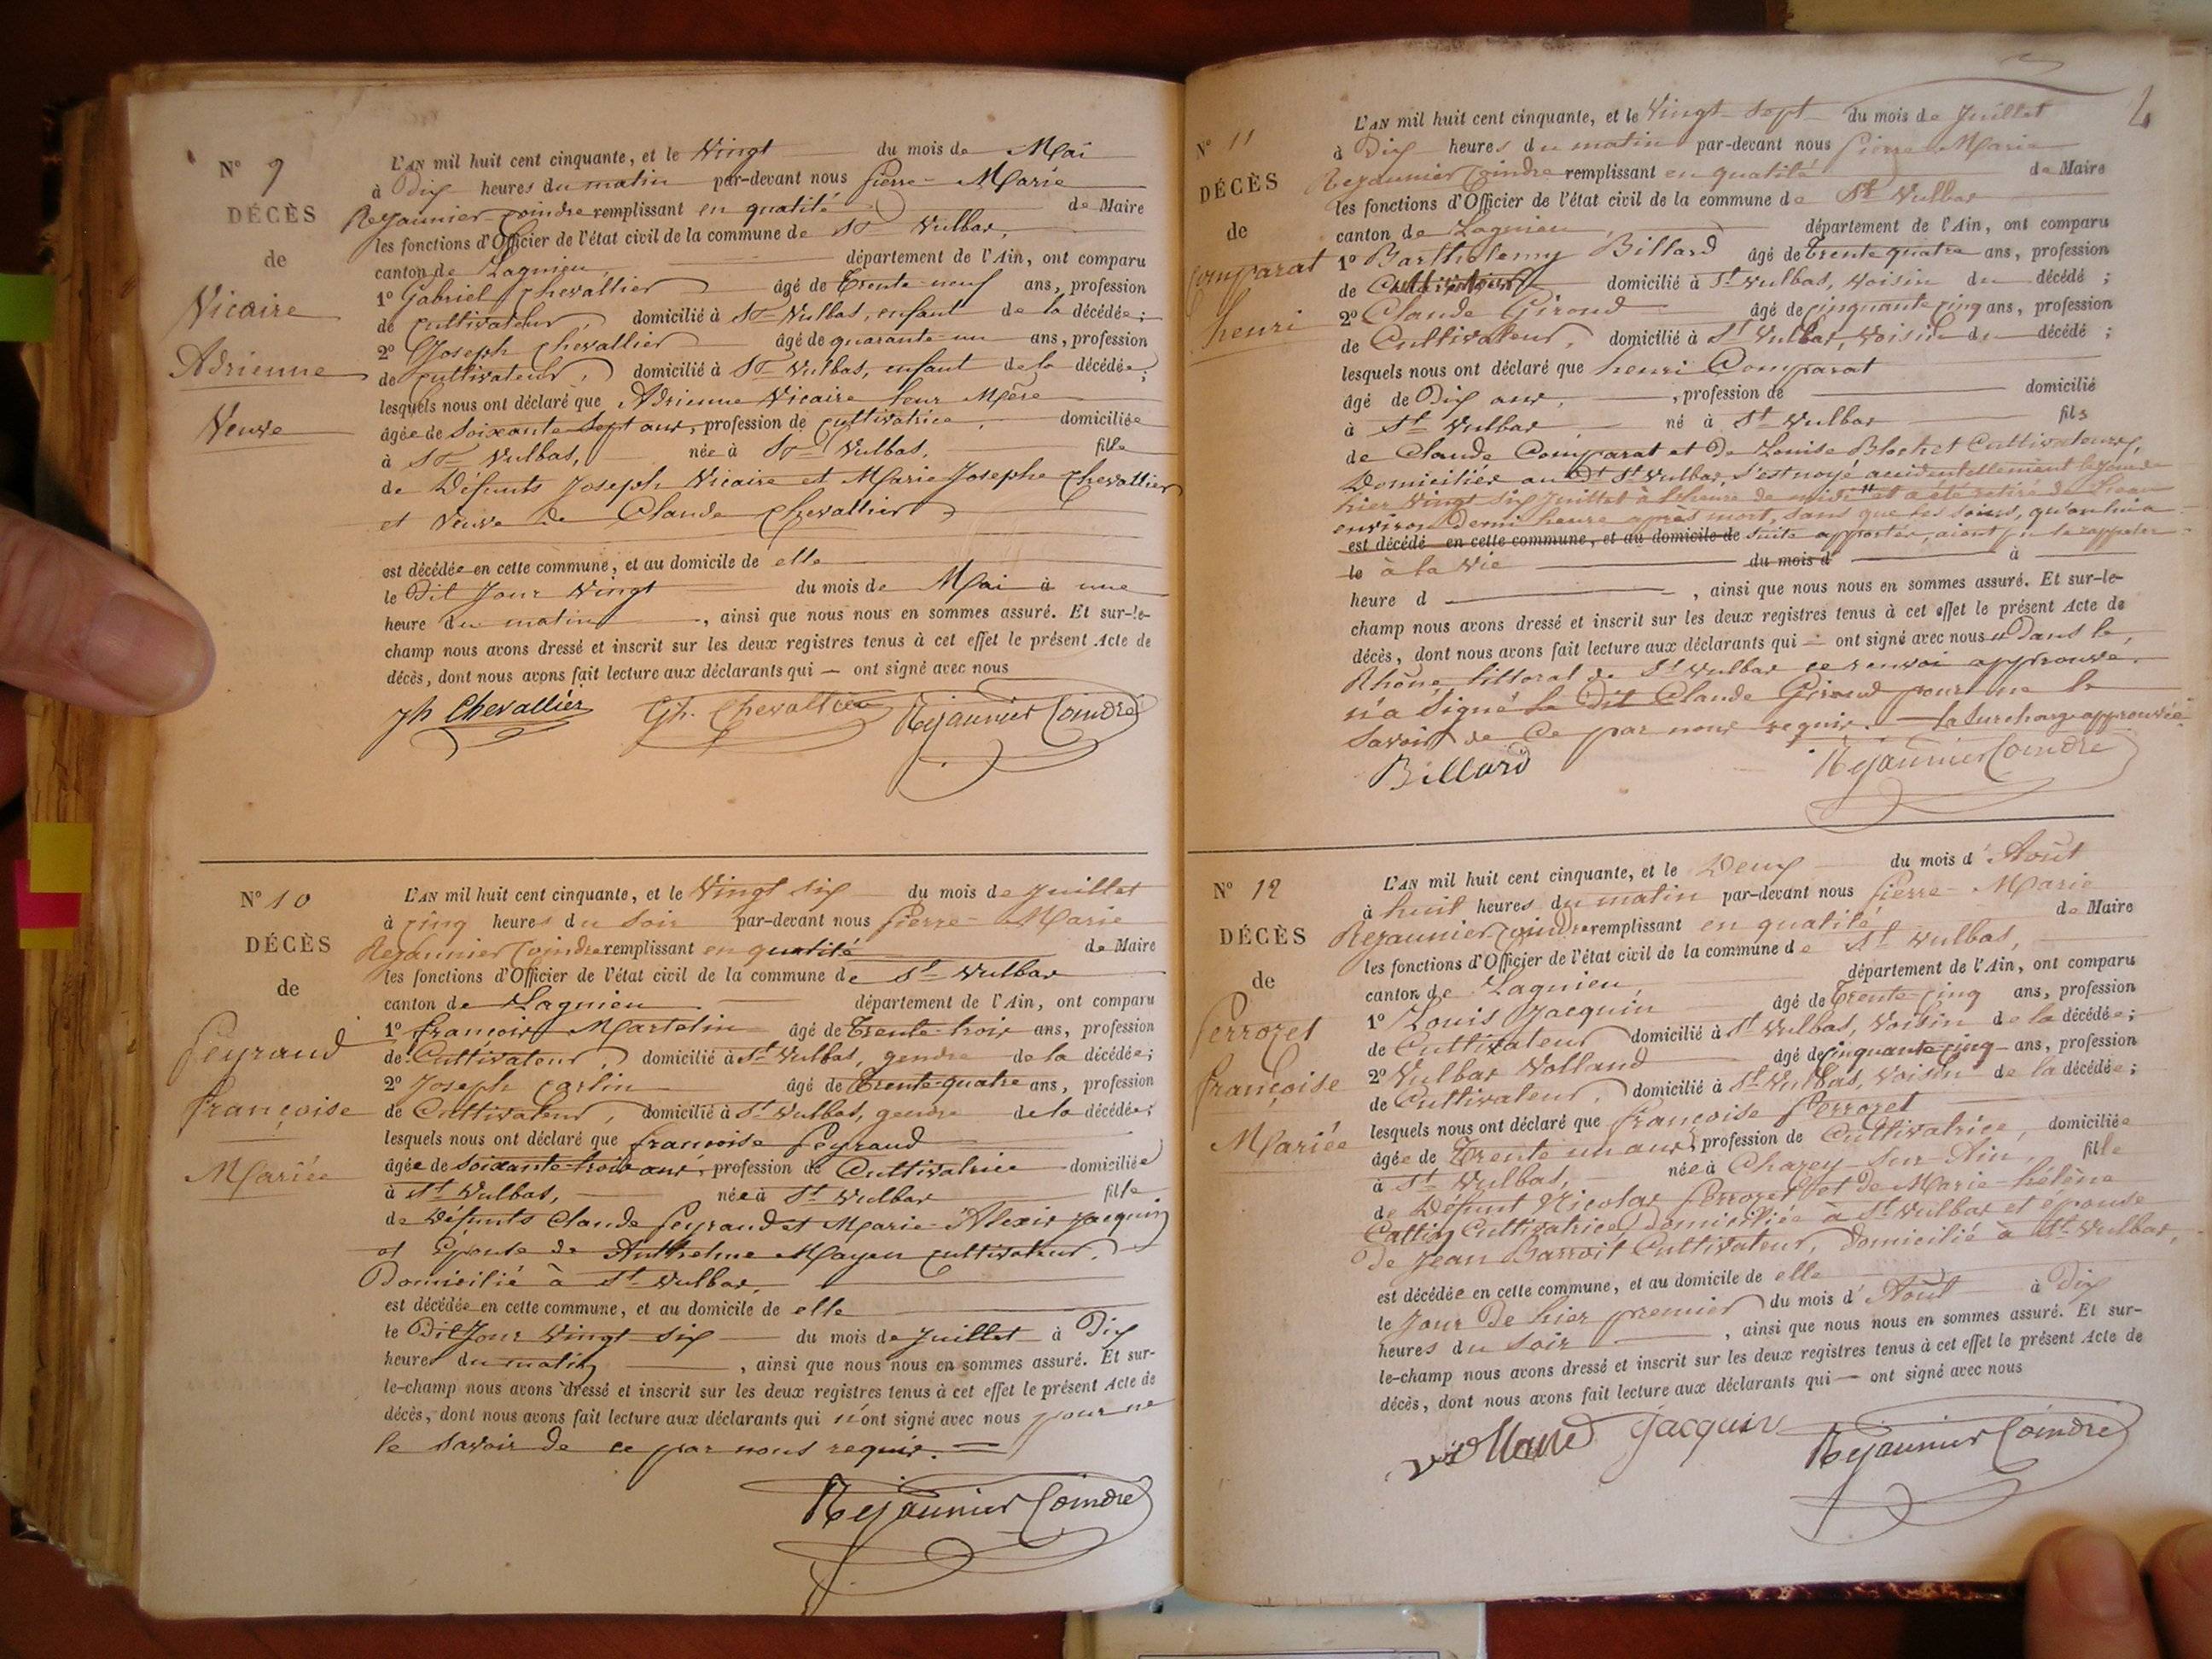 N° 9
DÉCÈS
de
Vicaire
Adrienne
Veuve
L'AN mil huit cent cinquante, et le Vingt du mois de Mai
à Dix heures du matin par-devant nous Pierre-Marie
Rejaunier-Coindre remplissant en qualité de Maire
les fonctions d'Officier de l'état civil de la commune de St Vulbas,
canton de Lagnieu, département de l'Ain, ont comparu
1° Gabriel Chevallier âgé de Trente-neuf ans, profession
de Cultivateur, domicilié à St Vulbas, enfant de la décédée;
2° Joseph Chevallier âgé de quarante-un ans, profession
de Cultivateur, domicilié à St Vulbas, enfant de la décédée;
lesquels nous ont déclaré que Adrienne Vicaire leur Mère
âgée de Soixante-Sept ans, profession de Cultivatrice, domiciliée
à St Vulbas, née à St Vulbas, fille
de Défunts Joseph Vicaire et Marie Josephe Chevallier
et Veuve de Claude Chevallier
est décédée en cette commune, et au domicile de elle
le Dit Jour Vingt du mois de Mai à une
heure du matin, ainsi que nous nous en sommes assuré. Et sur-le-
champ nous avons dressé et inscrit sur les deux registres tenus à cet effet le présent Acte de
décès, dont nous avons fait lecture aux déclarants qui — ont signé avec nous
Jh Chevallier Gh. Chevallier Rejaunier Coindre
N° 10
DÉCÈS
de
Peyraud
Françoise
Mariée
L'AN mil huit cent cinquante, et le Vingt six du mois de Juillet
à Cinq heures du Soir par-devant nous Pierre-Marie
Rejaunier Coindre remplissant en qualité de Maire
les fonctions d'Officier de l'état civil de la commune de St Vulbas
canton de Lagnieu département de l'Ain, ont comparu
1° François Martelin âgé de Trente-trois ans, profession
de Cultivateur, domicilié à St Vulbas, gendre de la décédée;
2° Joseph Carlin âgé de Trente-quatre ans, profession
de Cultivateur, domicilié à St Vulbas, gendre de la décédée;
lesquels nous ont déclaré que françoise Peyraud
âgée de soixante-trois ans, profession de Cultivatrice domiciliée
à St Vulbas, née à St Vulbas fille
de Défunts Claude Peyraud et Marie-Alexis Jacquin
et Épouse de Anthelme Mayen cultivateur,
Domicilié à St Vulbas,
est décédée en cette commune, et au domicile de elle
le Dit Jour Vingt six du mois de Juillet à Dix
heures du matin, ainsi que nous nous en sommes assuré. Et sur-
le-champ nous avons dressé et inscrit sur les deux registres tenus à cet effet le présent Acte de
décès, dont nous avons fait lecture aux déclarants qui n'ont signé avec nous pour ne
le savoir de ce par nous requis.
Rejaunier Coindre
N° 11
DÉCÈS
de
Comparat
henri
L'AN mil huit cent cinquante, et le Vingt-Sept du mois de Juillet
à Dix heures du matin par-devant nous Pierre-Marie
Rejaunier Coindre remplissant en qualité de Maire
les fonctions d'Officier de l'état civil de la commune de St Vulbas
canton de Lagnieu, département de l'Ain, ont comparu
1° Barthelemy Billard âgé de Trente quatre ans, profession
de Cultivateur domicilié à St Vulbas, Voisin du décédé;
2° Claude Giroud âgé de Cinquante Cinq ans, profession
de Cultivateur, domicilié à St Vulbas, Voisin du décédé;
lesquels nous ont déclaré que henri Comparat
âgé de Dix ans, profession de domicilié
à St Vulbas né à St Vulbas fils
de Claude Comparat et de Louise Blochet Cultivateurs,
Domiciliés au Dt St Vulbas, s'est noyé accidentellement le jour de
hier Vingt Six Juillet à l'heure de midi et a été retiré de l'eau
environ Demi heure après mort, sans que les soins, qu'on lui a
est décédé en cette commune, et au domicile de suite apportés, aient pu le rappeler
le à la Vie du mois d à
heure d , ainsi que nous nous en sommes assuré. Et sur-le-
champ nous avons dressé et inscrit sur les deux registres tenus à cet effet le présent Acte de
décès, dont nous avons fait lecture aux déclarants qui — ont signé avec nous Dans le
Rhône, littoral de St Vulbas ce renvoi approuvé.
n'a Signé Le Dit Claude Giroud pour ne le
Savoir de Ce par nous requis. La Surcharge approuvée
Billard Rejaunier Coindre
N° 12
DÉCÈS
de
Perrozet
françoise
Mariée
L'AN mil huit cent cinquante, et le Deux du mois d'Août
à huit heures du matin par-devant nous Pierre-Marie
Rejaunier Coindre remplissant en qualité de Maire
les fonctions d'Officier de l'état civil de la commune de St Vulbas,
canton de Lagnieu, département de l'Ain, ont comparu
1° Louis Jacquin âgé de Trente-Cinq ans, profession
de Cultivateur domicilié à St Vulbas, Voisin de la décédée;
2° Vulbas Volland âgé de Cinquante Cinq ans, profession
de Cultivateur, domicilié à St Vulbas, Voisin de la décédée;
lesquels nous ont déclaré que françoise Perrozet
âgée de Trente un ans profession de Cultivatrice, domiciliée
à St Vulbas, née à Chazey-Sur-Ain, fille
de Défunt Nicolas Perrozet et de Marie-hélène
Cattin Cultivatrice, domiciliée à St Vulbas et épouse
De Jean Barroit Cultivateur, Domicilié à St Vulbas,
est décédée en cette commune, et au domicile de elle
le Jour De hier premier du mois d'Août à Dix
heures du Soir, ainsi que nous nous en sommes assuré. Et sur-
le-champ nous avons dressé et inscrit sur les deux registres tenus à cet effet le présent Acte de
décès, dont nous avons fait lecture aux déclarants qui — ont signé avec nous
Volland Jacquin Rejaunier Coindre